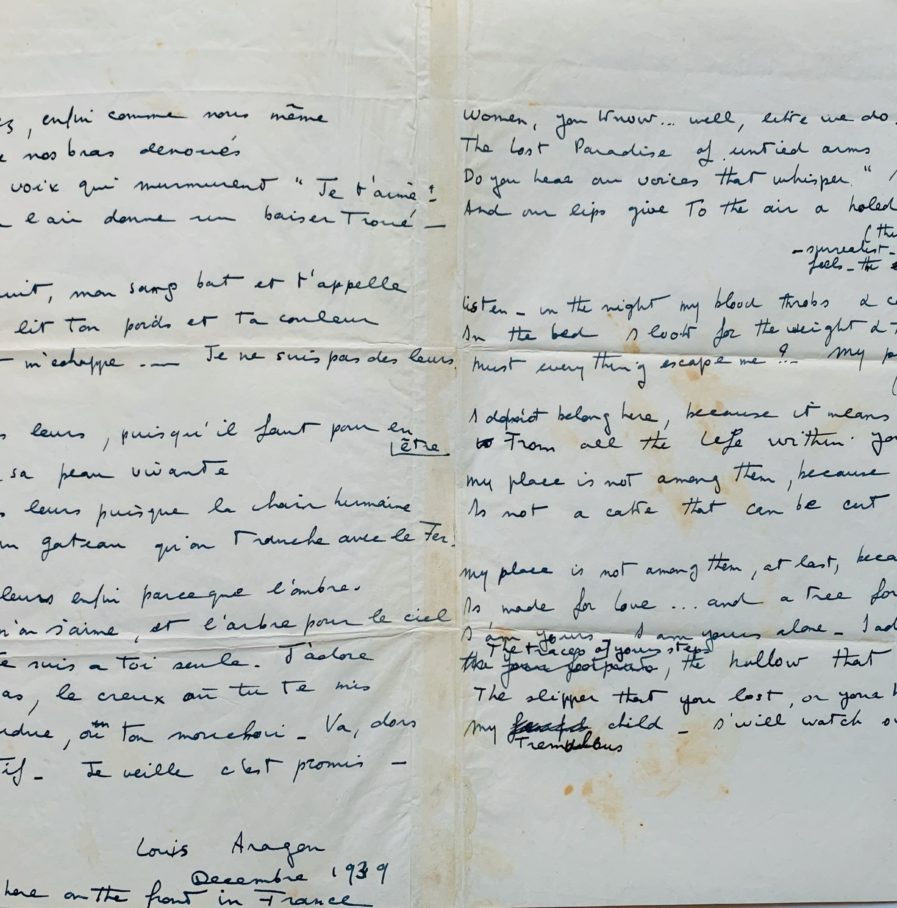 , enfin comme nous même
nos bras denoués
voix qui murmurent "Je t'aime"?
l'air donne un baiser Troué —
mon sang bat et t'appelle
lit Ton poids et Ta couleur
m'echappe -— Je ne suis pas des leurs
leurs, puisqu'il faut pour en
être
sa peau vivante
leurs puisque la chair humaine
gateau qu'on Tranche avec le Fer.
leurs enfin parce que l'ombre
s'aime, et l'arbre pour le ciel
suis a toi seule. J'adore
le creux où tu te mis
ou ton mouchoir - Va, dors
Je veille c'est promis —
Louis Aragon
Decembre 1939
here on the front in France
Women, you know... well, like we do
The Lost Paradise of untied arms
Do you hear our voices that whisper "
And our lips give To the air a holed
- surrealist -
feels - the
listen - in the night my blood throbs &
In the bed I look for the weight &
must every thing escape me?- My
I don't belong here, because it means
From all the Life within
my place is not among them, because
Is not a cake that can be cut
my place is not among them, at last,
Is made for love ... and a tree for
I am yours I am yours alone -
The traces of your steps
the your footprints, the hollow that
The slipper that you lost, or your
My child - I will watch